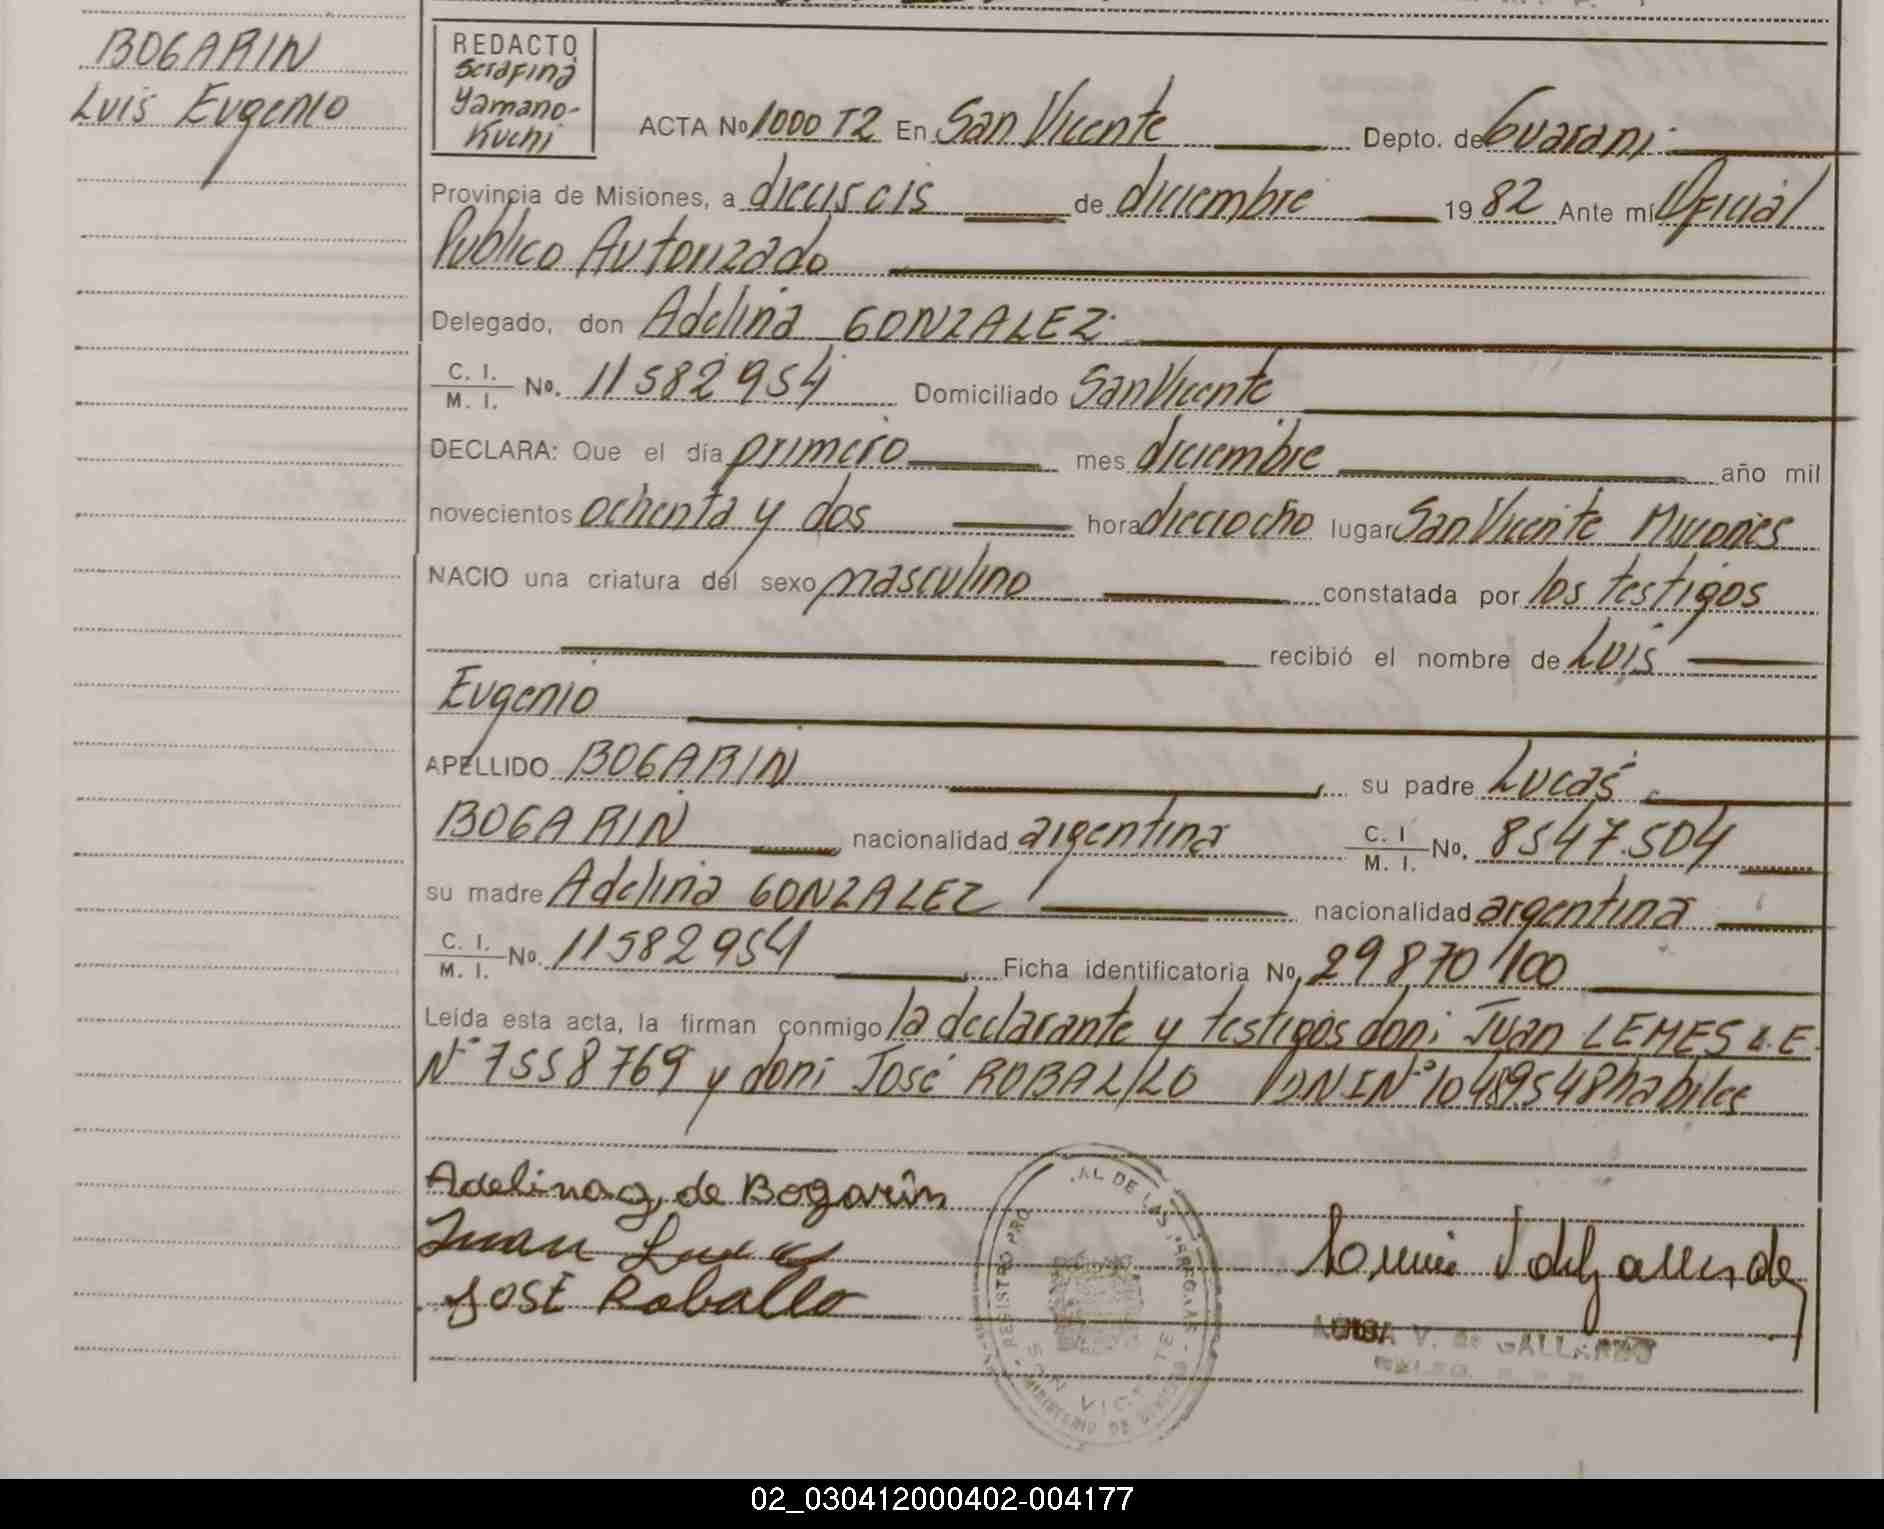 BOGARIN
Luis Eugenio
REDACTO
Serafina
Yamano-
Kuchi
ACTA No 1000 T2 En San Vicente Depto. de Guarani
Provincia de Misiones, a dieciseis de diciembre 1982 Ante mí Oficial
Publico Autorizado
Delegado, don Adelina GONZALEZ
C. I. / M. I. No. 11582954 Domiciliado San Vicente
DECLARA: Que el día primero mes diciembre año mil
novecientos ochenta y dos hora dieciocho lugar San Vicente Misiones
NACIO una criatura del sexo masculino constatada por los testigos
recibió el nombre de Luis
Eugenio
APELLIDO BOGARIN su padre Lucas
BOGARIN nacionalidad argentina C. I / M. I. No. 8547.504
su madre Adelina GONZALEZ nacionalidad argentina
C. I. / M. I. No. 11582954 Ficha identificatoria No. 29870/100
Leída esta acta, la firman conmigo la declarante y testigos don: Juan LEMES L.E.
N° 7558769 y don: José ROBALLO D.N.I N° 10489548 habiles
Adelina g. de Bogarín
Juan
José Roballo
REGISTRO PRO AL DE LAS PERSONAS
SAN VICENTE
V. de GALLARDO
02_030412000402-004177